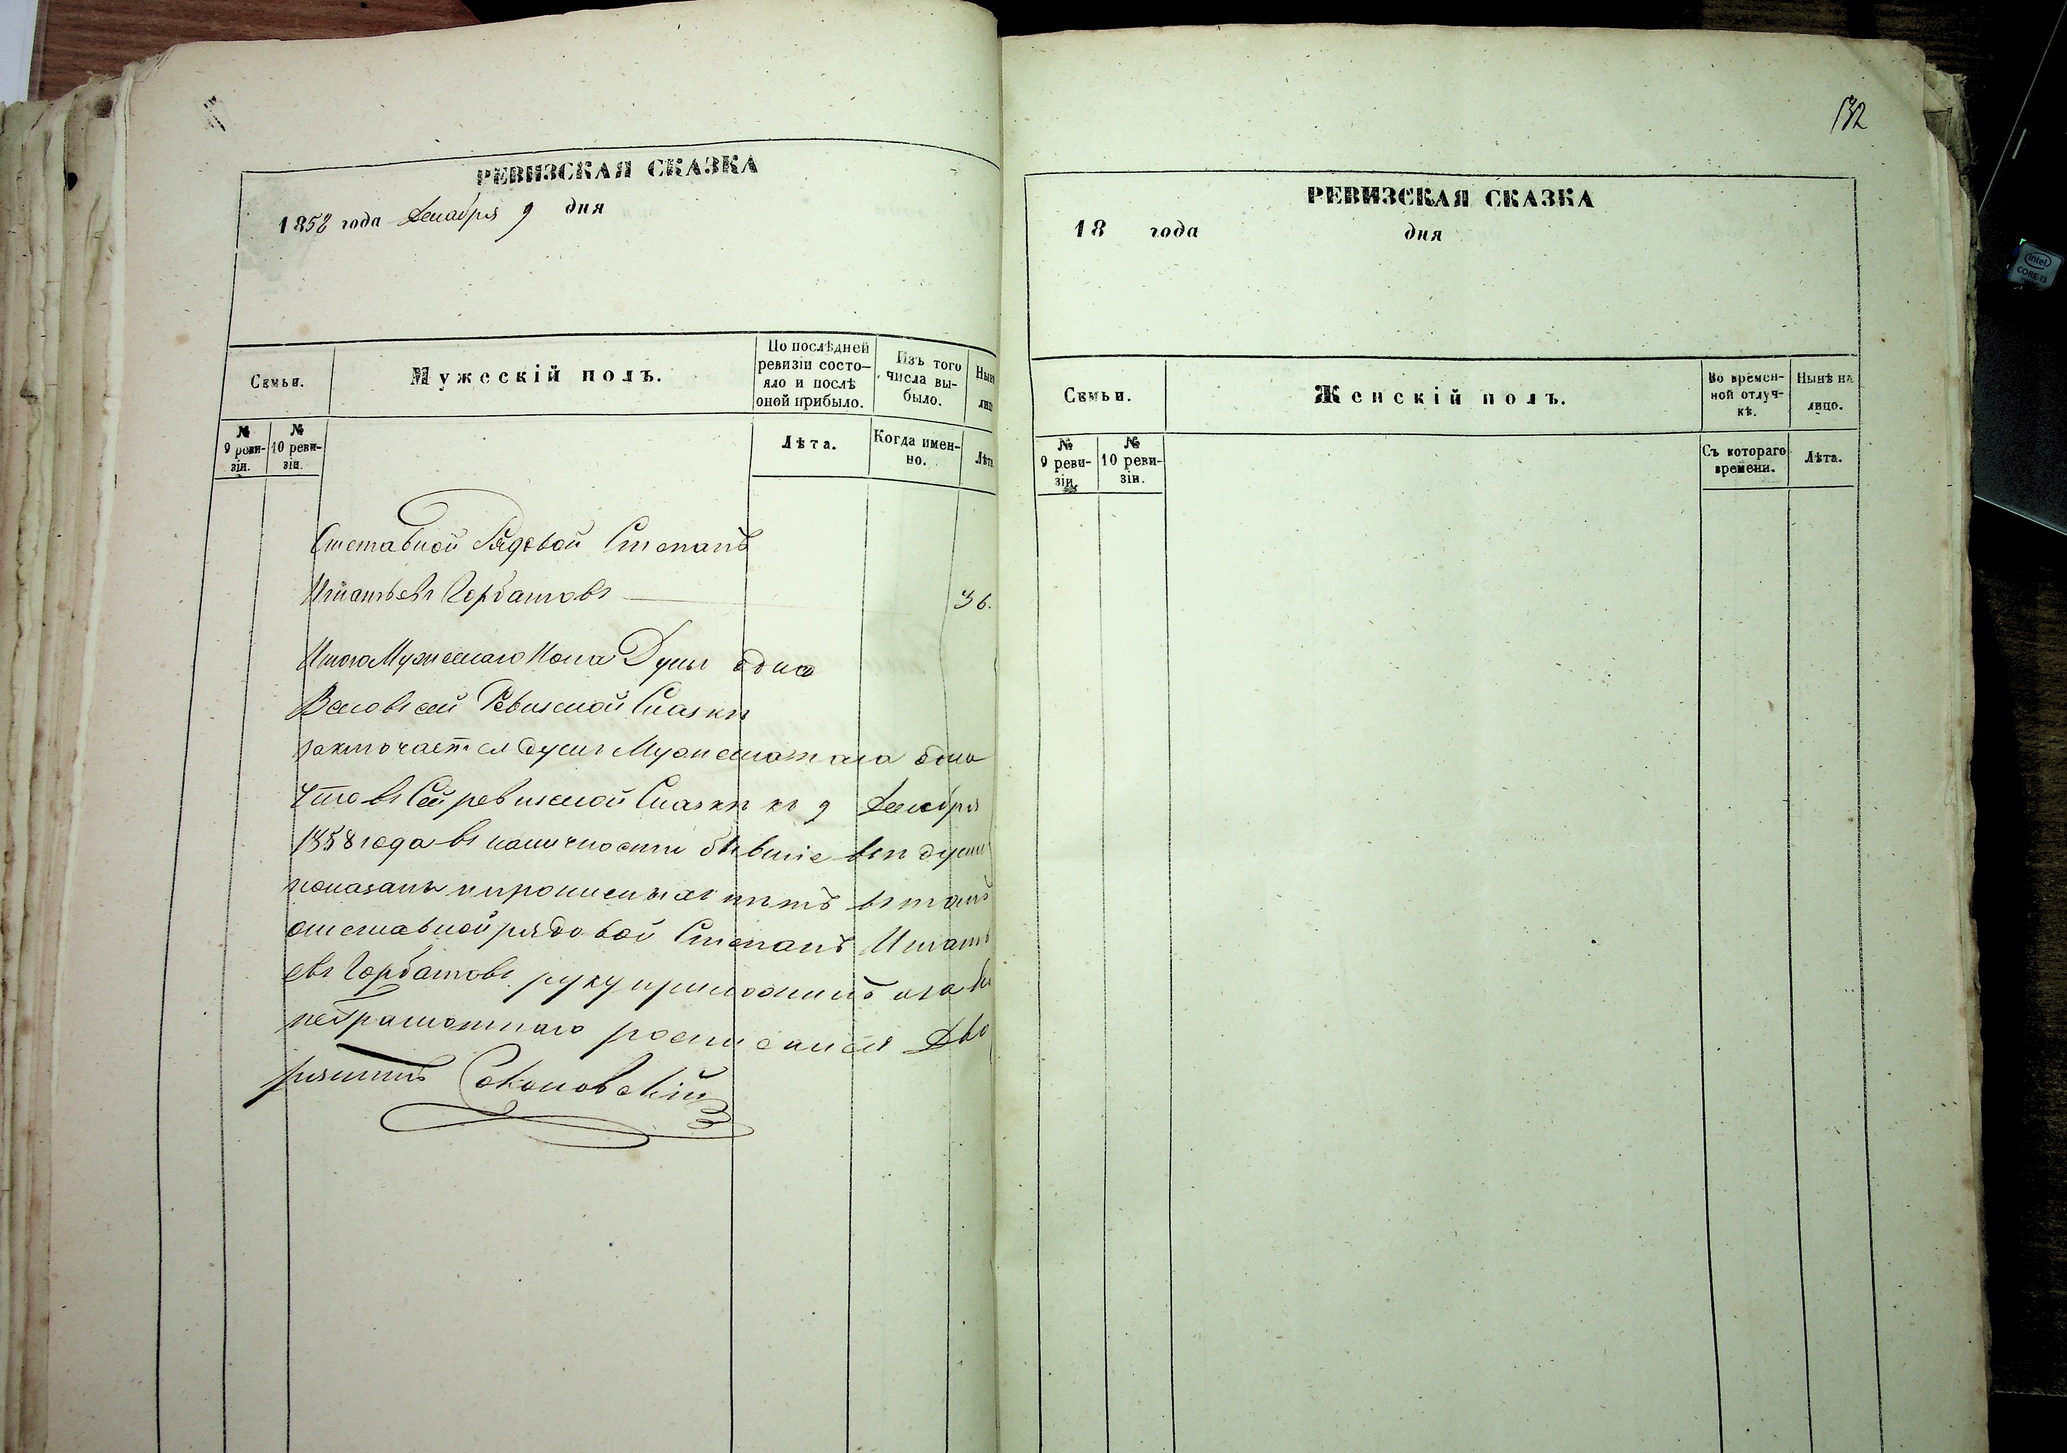 РЕВИЗСКАЯ СКАЗКА
1858 года Декабря 9 дня
Семьи.
Мужескій полъ.
По послѣдней ревизіи состо-
яло и послѣ
оной прибыло.
Изъ того
числа вы-
было.
Нынѣ
лиц
№
9 реви-
зіи.
№
10 реви-
зіи.
Лѣта.
Когда имен-
но.
Лѣта
Отставной Рядовой Степанъ
Игнатьевъ Горбатовъ
36.
Итого Мужескаго Пола Душъ одна
Всего въ сей Ревизской Сказкѣ
заключается душъ Мужеска пола одна
Что въ Сей ревизской Сказкѣ къ 9 Декабря
1858 года въ наличности бывшіе всѣ души
показаны и прописныхъ нѣтъ въ томъ
отставной рядовой Степанъ Игнать
евъ Горбатовъ руку приложилъ а за
неграмотнаго росписался Дво
рянинъ Соколовскій
132
РЕВИЗСКАЯ СКАЗКА
18 года дня
Семьи.
Женскій полъ.
Во времен-
ной отлуч-
кѣ.
Нынѣ на
лицо.
№
9 реви-
зіи.
№
10 реви-
зіи.
Съ котораго
времени.
Лѣта.
intel
CORE i3